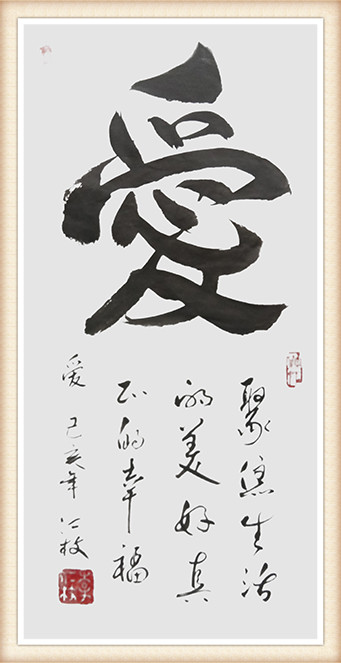 愛
聚焦生活
的美好真
正的幸福
爱 己亥年